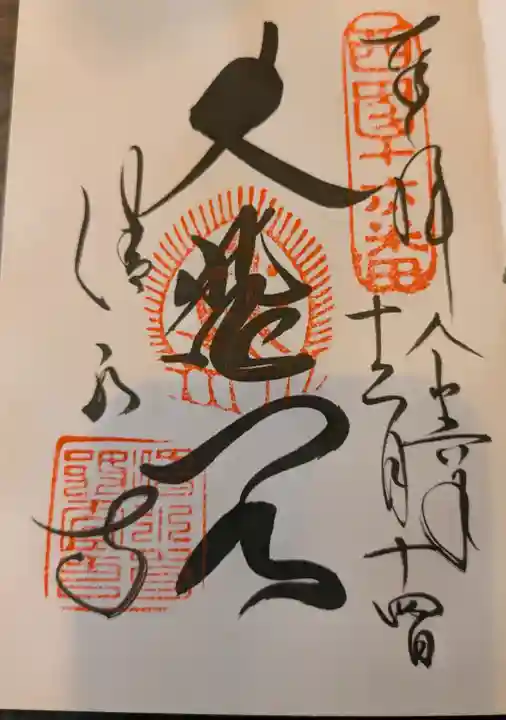 西国十六番
奉拝
令和六年
十二月十四日
大悲閣
清水寺